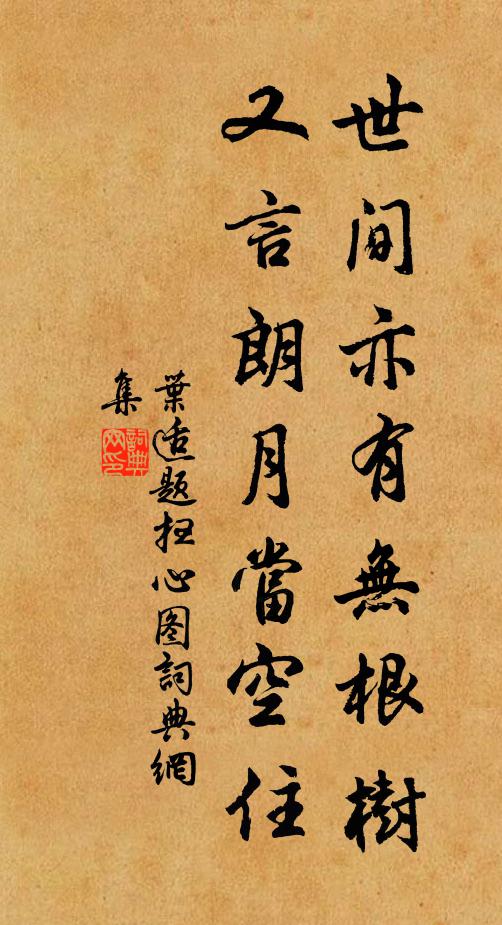 世間亦有無根樹
又言朗月當空住
葉适題拄心图詞典網
集
詞典
网印